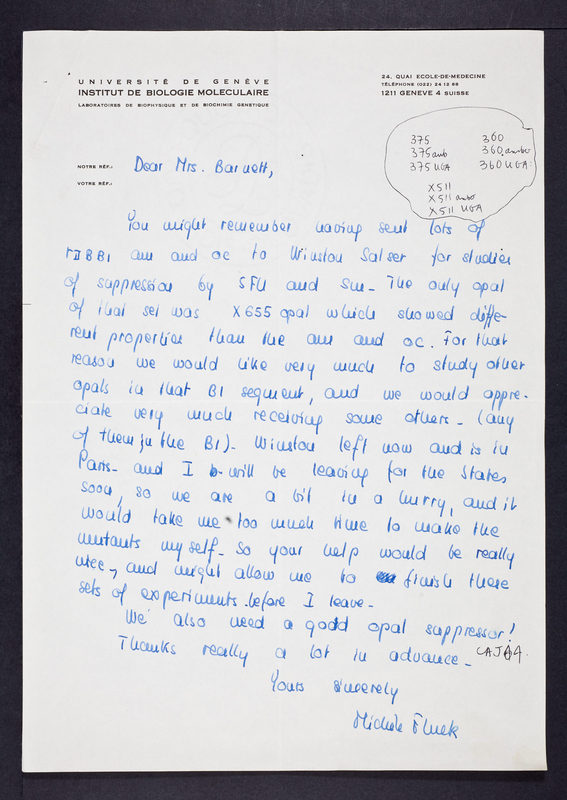 UNIVERSITÉ DE GENÈVE
INSTITUT DE BIOLOGIE MOLECULAIRE
LABORATOIRES DE BIOPHYSIQUE ET DE BIOCHIMIE GENETIQUE
24, QUAI ECOLE-DE-MEDECINE
TÉLÉPHONE (022) 24 12 88
1211 GENEVE 4 SUISSE
375 360
375 amb 360 amber
375 UGA 360 UGA
X511
X511 amb
X511 UGA
NOTRE RÉF.:
VOTRE RÉF.:
Dear Mrs. Barnett,
You might remember having sent lots of
rII B B1 am and oc to Winston Salser for studies
of suppression by 5FU and Su-. The only opal
of that set was X655 opal which showed diffe-
rent properties than the am and oc. For that
reason we would like very much to study other
opals in that B1 segment, and we would appre-
ciate very much receiving some others - (any
of them in the B1). Winston left now and is in
Paris - and I will be leaving for the States
soon, so we are a bit in a hurry, and it
would take me too much time to make the
mutants myself. So your help would be really
nice, and might allow me to finish these
sets of experiments before I leave.
We also need a good opal suppressor!
Thanks really a lot in advance. CAJ64.
Yours sincerely
Michèle Fluck